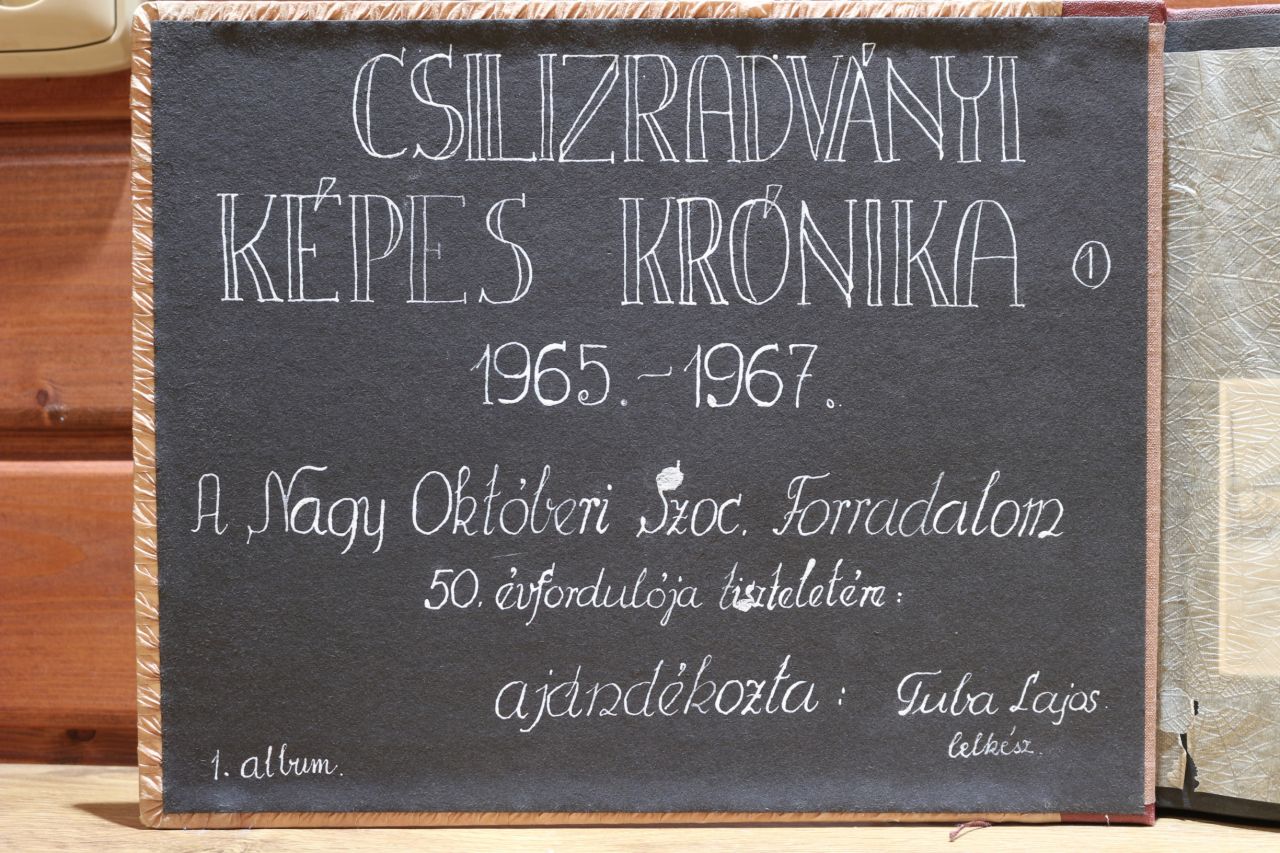 CSILIZRADVÁNYI
KÉPES KRÓNIKA 1
1965. - 1967.
A Nagy Októberi Szoc. Forradalom
50. évfordulója tiszteletére:
ajándékozta: Tuba Lajos.
lelkész.
1. album.